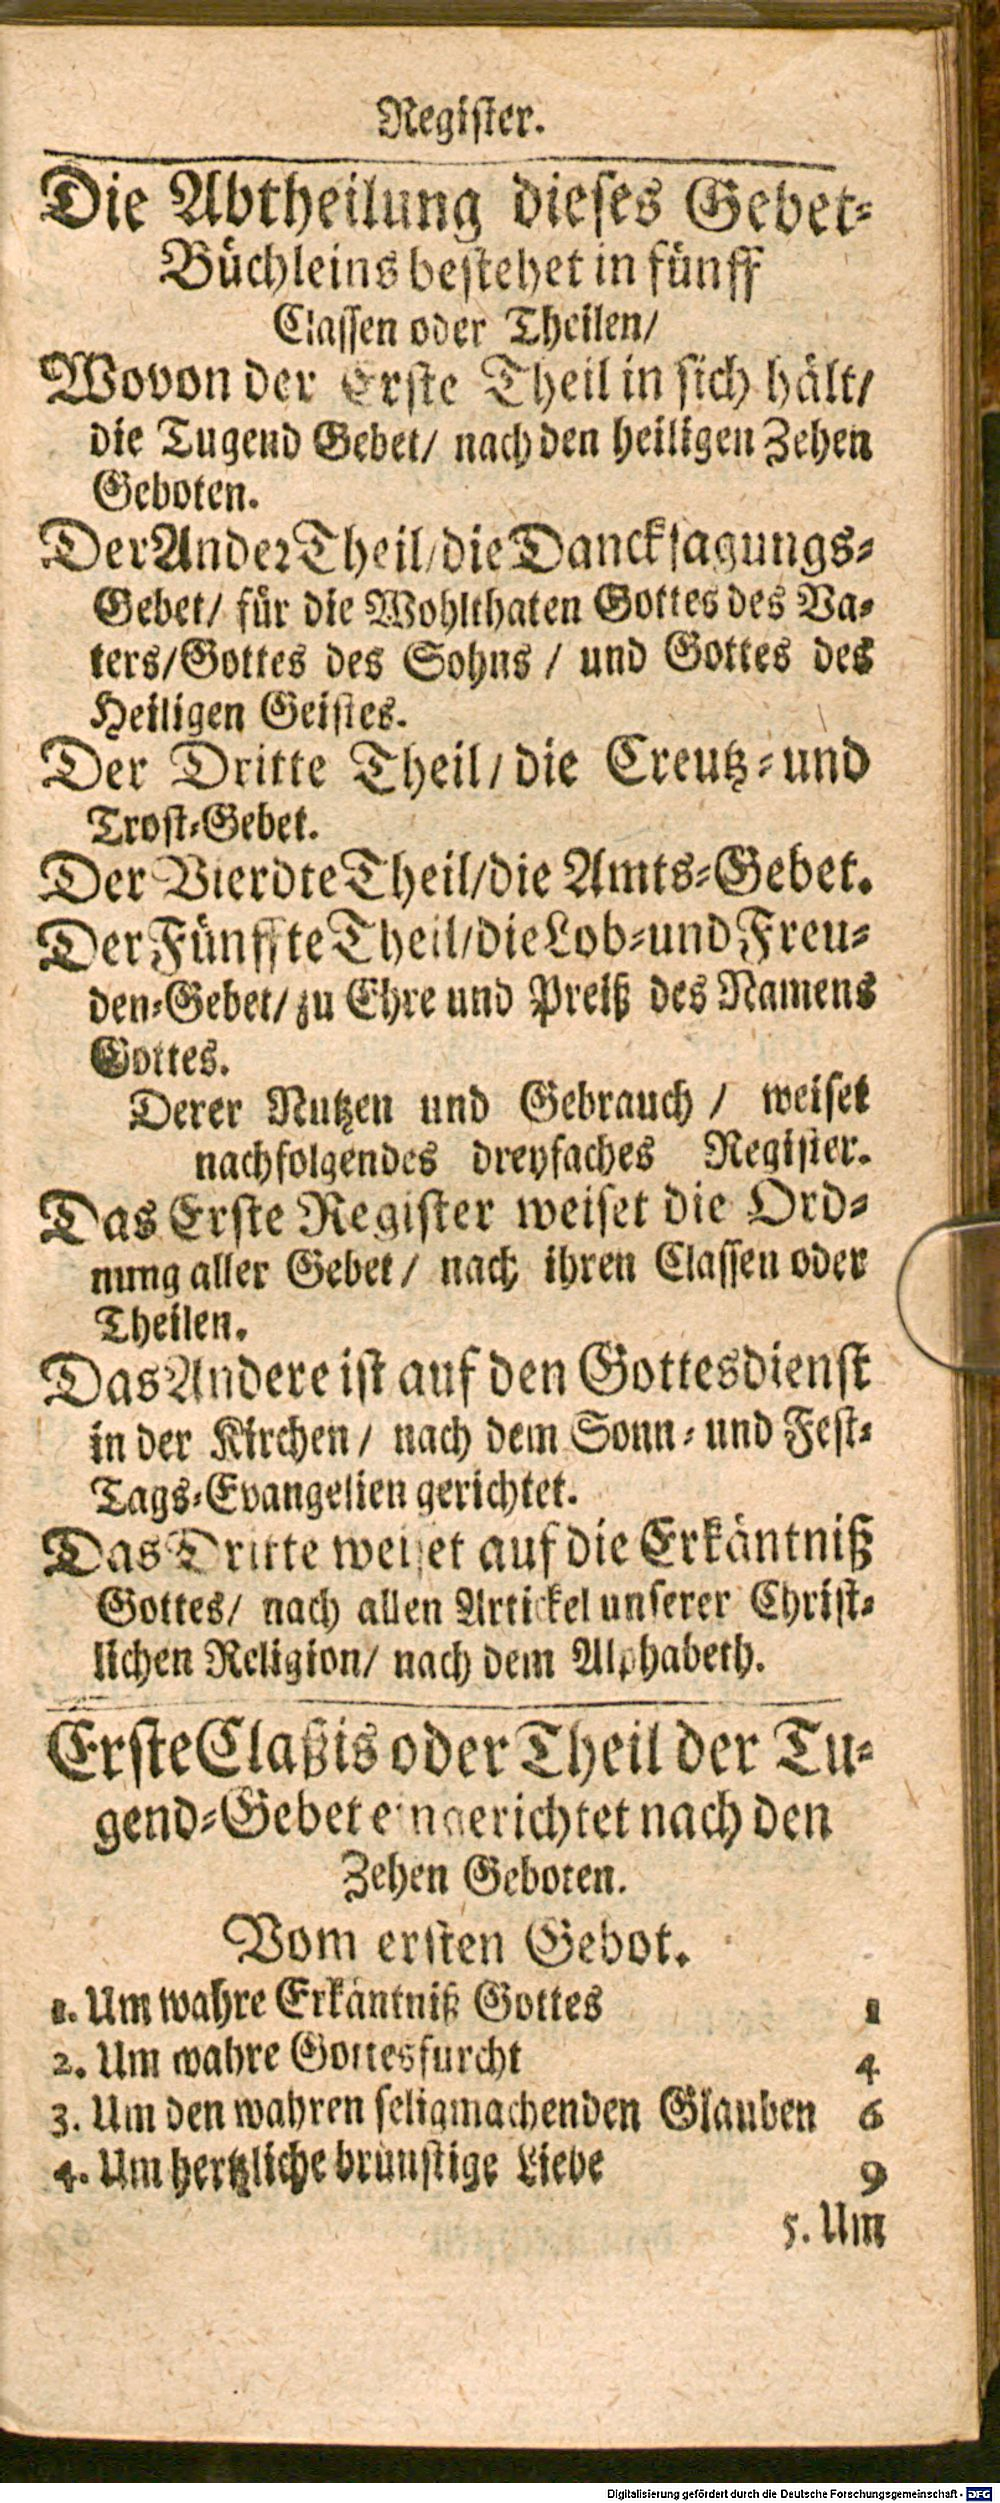 Register.
Die Abtheilung dieses Gebet-
Büchleins bestehet in fünff
Classen oder Theilen/
Wovon der Erste Theil in sich hält/
die Tugend Gebet/ nach den heiligen Zehen
Geboten.
Der Ander Theil/die Dancksagungs-
Gebet/ für die Wohlthaten Gottes des Va-
ters/Gottes des Sohns / und Gottes des
Heiligen Geistes.
Der Dritte Theil/ die Creutz-und
Trost-Gebet.
Der Vierdte Theil/die Amts-Gebet.
Der Fünffte Theil/die Lob-und Freu-
den-Gebet/ zu Ehre und Preiß des Namens
Gottes.
Derer Nutzen und Gebrauch / weiset
nachfolgendes dreyfaches Register.
Das Erste Register weiset die Ord-
nung aller Gebet / nach ihren Classen oder
Theilen.
Das Andere ist auf den Gottesdienst
in der Kirchen / nach dem Sonn- und Fest-
Tags-Evangelien gerichtet.
Das Dritte weiset auf die Erkäntniß
Gottes/ nach allen Artickel unserer Christ-
lichen Religion/ nach dem Alphabeth.
Erste Claßis oder Theil der Tu-
gend-Gebet eingerichtet nach den
Zehen Geboten.
Vom ersten Gebot.
1. Um wahre Erkäntniß Gottes 1
2. Um wahre Gottesfurcht 4
3. Um den wahren seligmachenden Glauben 6
4. Um hertzliche brünstige Liebe 9
5. Um
Digitalisierung gefördert durch die Deutsche Forschungsgemeinschaft - DFG